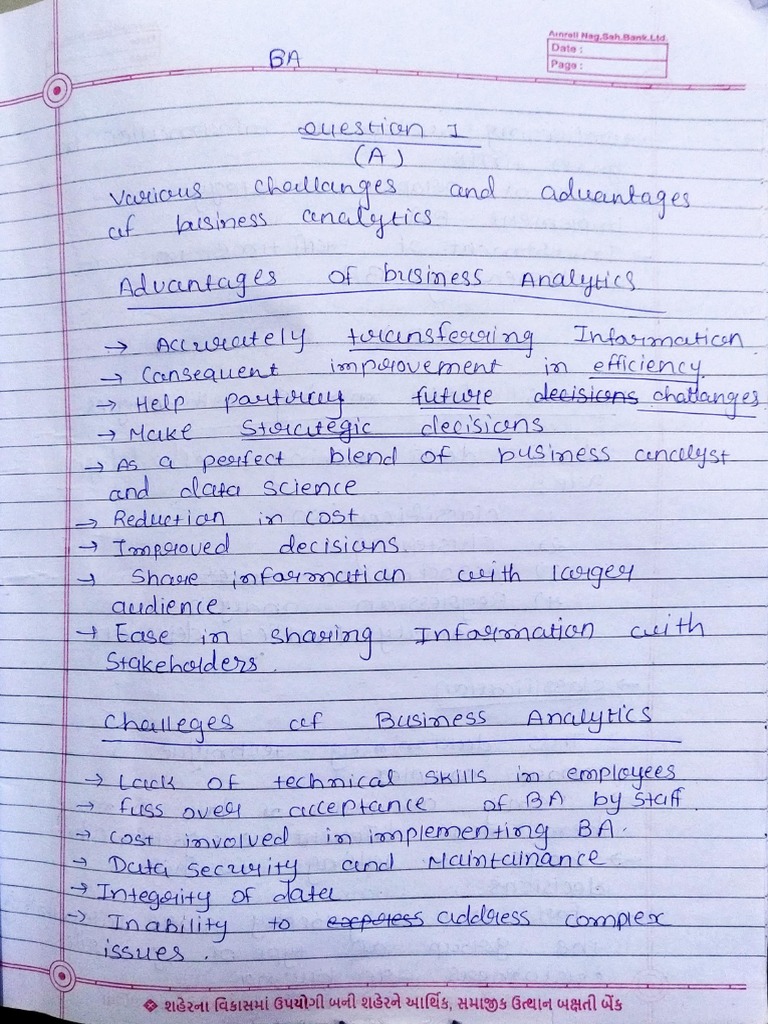 Amreli Nag.Sah.Bank.Ltd.
Date :
Page :
BA
Question 1
(A)
Various challanges and advantages
of business analytics
Advantages of business Analytics
→ Accurately transferring Information
→ Consequent improvement in efficiency
→ Help portray future decisions challanges
→ Make Strategic decisions
→ As a perfect blend of business analyst
and data science
→ Reduction in cost
→ Improved decisions
→ Share information with larger
audience
→ Ease in sharing Information with
Stakeholders.
Challeges of Business Analytics
→ Lack of technical skills in employees
→ fuss over acceptance of BA by staff.
→ cost involved in implementing BA.
→ Data security and Maintainance
→ Integrity of data
→ Inability to express address complex
issues.
❖ શહેરના વિકાસમાં ઉપયોગી બની શહેરને આર્થિક, સમાજીક ઉત્થાન બક્ષતી બેંક